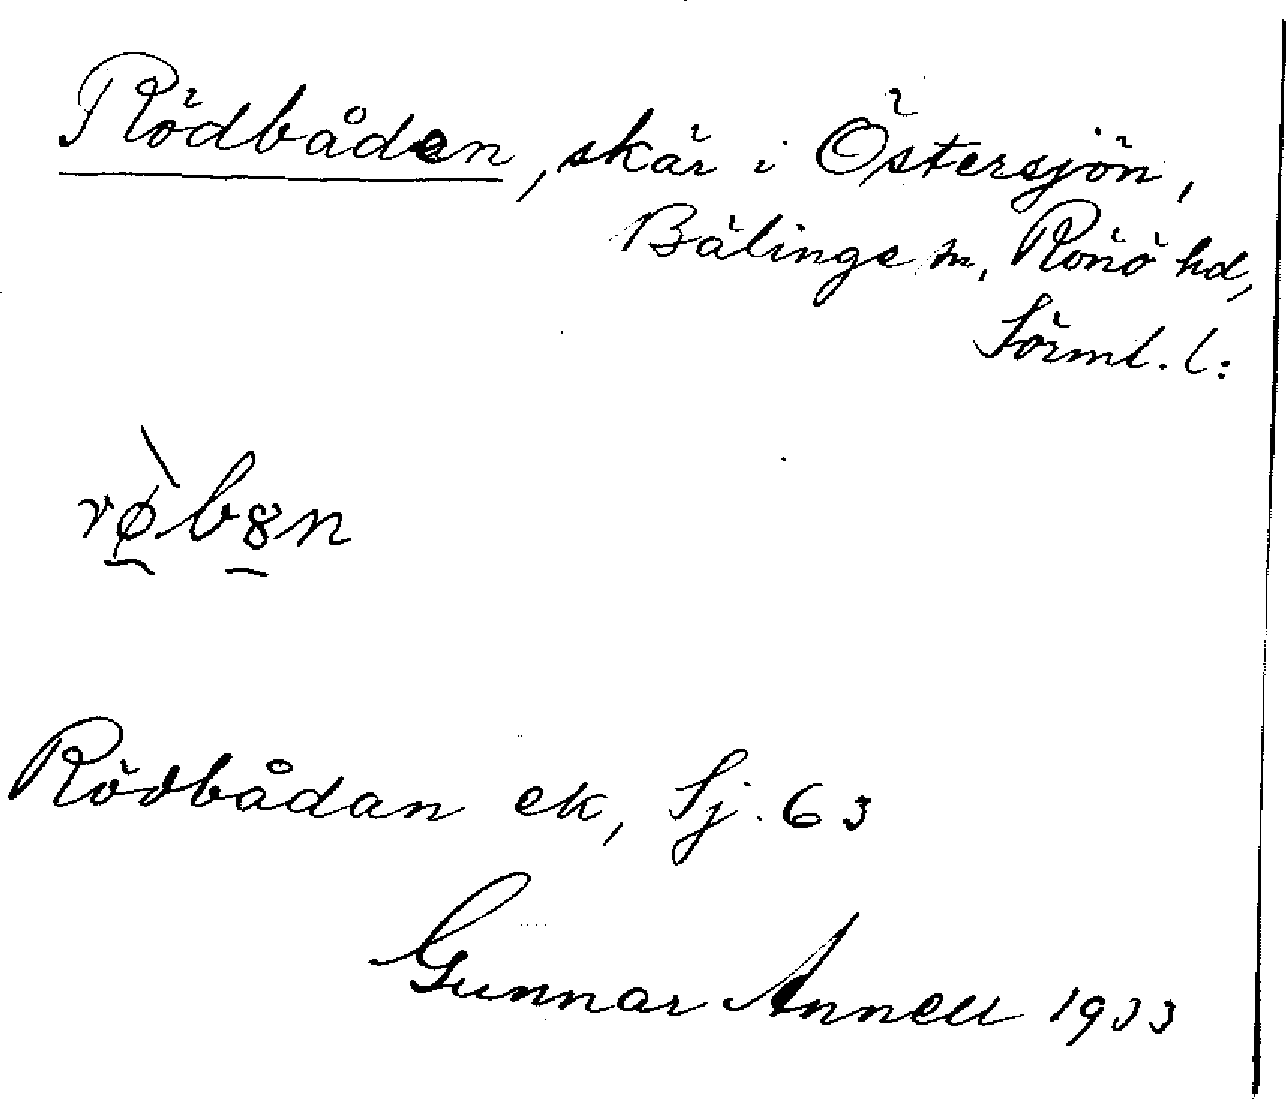 Rödbåden, skär i Östersjön,
Bälinge sn, Rönö hd,
Sörml. l:
rø̀b8n
Rödbådan ek, Sj. 63
Gunnar Annell 1933